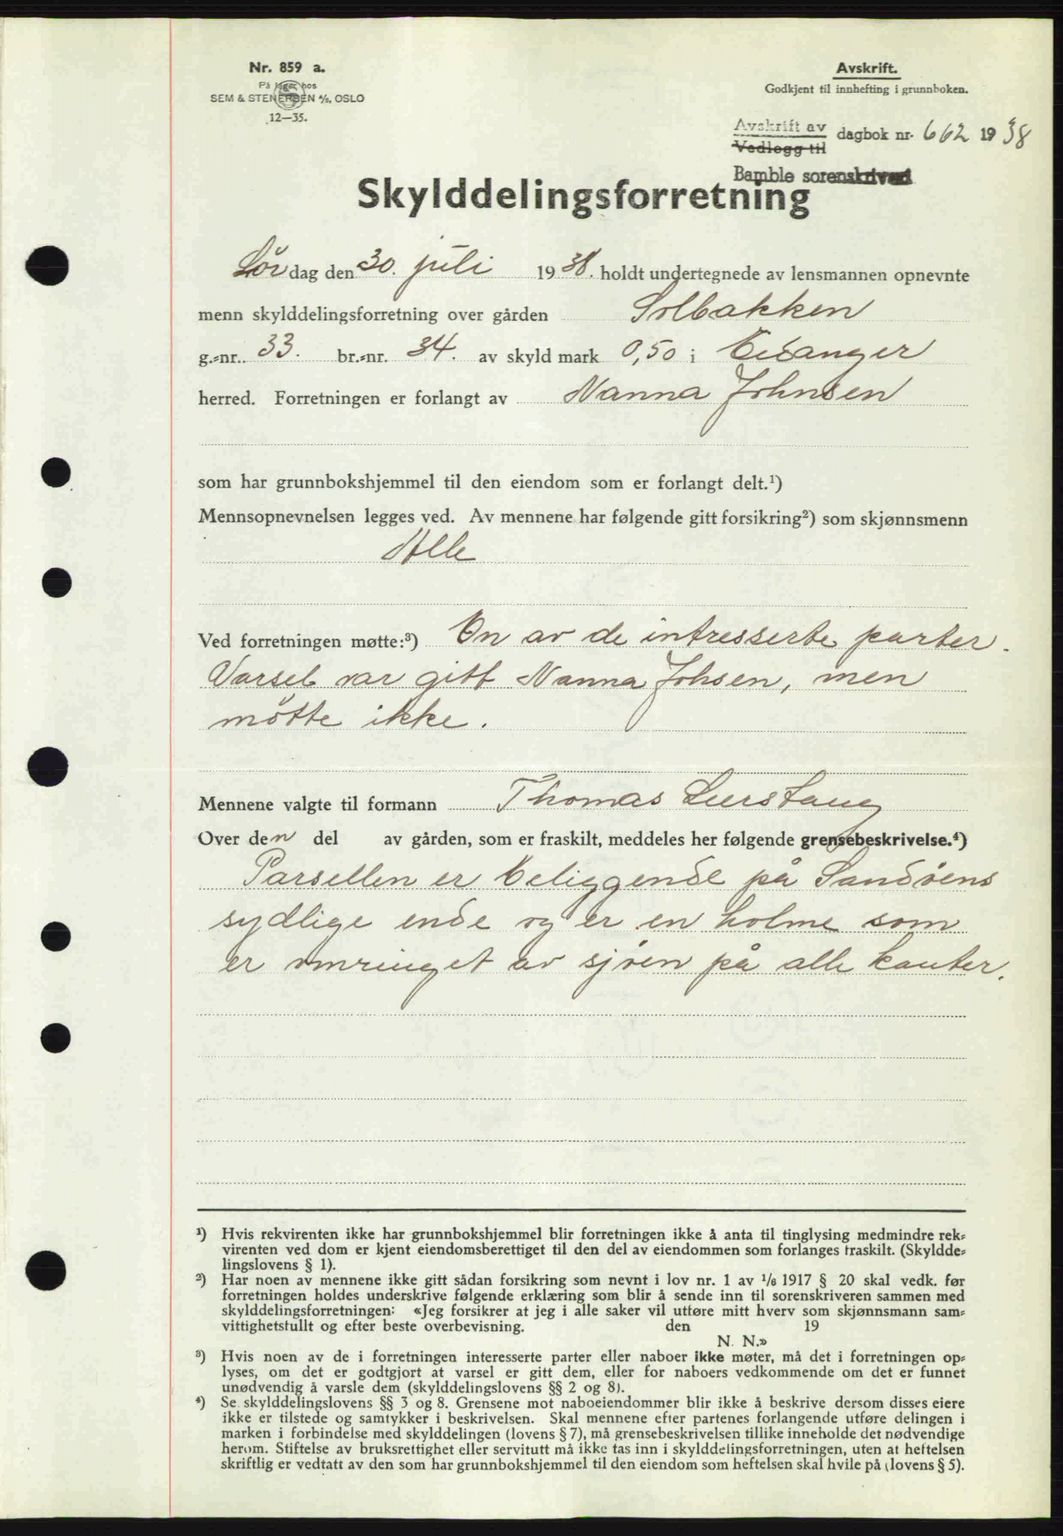 Nr. 859 a.
På lager hos
SEM & STENERSEN A/S, OSLO
12—35.
Avskrift.
Godkjent til innhefting i grunnboken.
Avskrift av
Vedlegg til
dagbok nr. 662 1938
Bamble sorenskriveri
Skylddelingsforretning
Lördag den 30. juli 1938. holdt undertegnede av lensmannen opnevnte
menn skylddelingsforretning over gården Solbakken
g.-nr. 33. br.-nr. 34. av skyld mark 0,50 i Eidanger
herred. Forretningen er forlangt av Nanna Johnsen
som har grunnbokshjemmel til den eiendom som er forlangt delt.¹)
Mennsopnevnelsen legges ved. Av mennene har følgende gitt forsikring²) som skjønnsmenn
Alle
Ved forretningen møtte:³) En av de intresserte parter.
Varsel var gitt Nanna Johsen, men
mötte ikke.
Mennene valgte til formann Thomas
Over den del av gården, som er fraskilt, meddeles her følgende grensebeskrivelse.⁴)
Parsellen er beliggende på Sandöens
sydlige ende og er en holme som
er omringet av sjöen på alle kanter.
¹) Hvis rekvirenten ikke har grunnbokshjemmel blir forretningen ikke å anta til tinglysing medmindre rek-
virenten ved dom er kjent eiendomsberettiget til den del av eiendommen som forlanges fraskilt. (Skyldde-
lingslovens § 1).
²) Har noen av mennene ikke gitt sådan forsikring som nevnt i lov nr. 1 av 1/6 1917 § 20 skal vedk. før
forretningen holdes underskrive følgende erklæring som blir å sende inn til sorenskriveren sammen med
skylddelingsforretningen: «Jeg forsikrer at jeg i alle saker vil utføre mitt hverv som skjønnsmann sam-
vittighetsfullt og efter beste overbevisning. den 19
N. N.»
³) Hvis noen av de i forretningen interesserte parter eller naboer ikke møter, må det i forretningen op-
lyses, om det er godtgjort at varsel er gitt dem, eller for naboers vedkommende om det er funnet
unødvendig å varsle dem (skylddelingslovens §§ 2 og 8).
⁴) Se skylddelingslovens §§ 3 og 8. Grensene mot naboeiendommer blir ikke å beskrive dersom disses eiere
ikke er tilstede og samtykker i beskrivelsen. Skal mennene efter partenes forlangende utføre delingen i
marken i forbindelse med skylddelingen (lovens § 7), må grensebeskrivelsen tillike inneholde det nødvendige
herom. Stiftelse av bruksrettighet eller servitutt må ikke tas inn i skylddelingsforretningen, uten at heftelsen
skriftlig er vedtatt av den som har grunnbokshjemmel til den eiendom som heftelsen skal hvile på (lovens § 5).